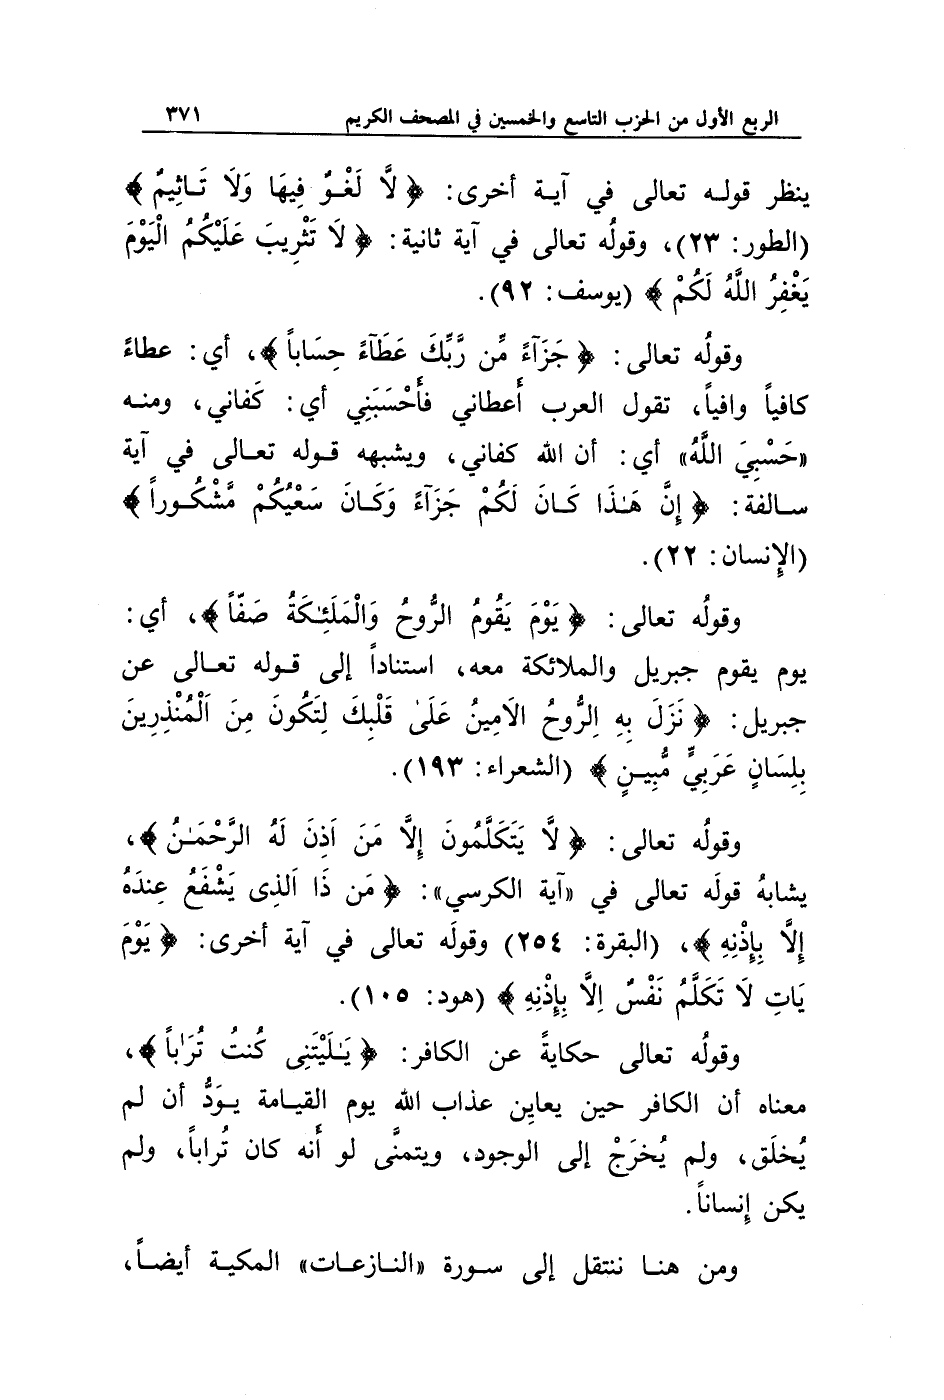 الربع الأول من الحزب التاسع والخمسين في المصحف الكريم ٣٧١
ينظر قولـه تعالى في آيـة أخرى: ﴿ لَّا لَغْـوٌ فِيهَا وَلَا تَـاثِيمٌ ﴾
(الطور: ٢٣)، وقولُه تعالى في آية ثانية: ﴿ لَا تَثْرِيبَ عَلَيْكُمُ الْيَوْمَ
يَغْفِرُ اللَّهُ لَكُمْ ﴾ (يوسف: ٩٢).
وقولُه تعالى: ﴿ جَزَآءً مِّن رَّبِّكَ عَطَآءً حِسَاباً ﴾، أي: عطاءً
كافياً وافياً، تقول العرب أعطاني فأَحْسَبَنِي أي: كَفاني، ومنـه
«حَسْبِيَ اللَّهُ» أي: أن الله كفاني، ويشبهه قـوله تعـالى في آية
سـالفة: ﴿ إِنَّ هَـٰذَا كَـانَ لَكُمْ جَزَآءً وَكَـانَ سَعْيُكُمْ مَّشْكُـوراً ﴾
(الإنسان: ٢٢).
وقولُه تعالى: ﴿ يَوْمَ يَقُومُ الرُّوحُ وَالْمَلَـٰٓئِكَةُ صَفّاً ﴾، أي:
يوم يقوم جبريل والملائكة معه، استناداً إلى قـوله تعـالى عن
جبريل: ﴿ نَزَلَ بِهِ اِلرُّوحُ الَامِينُ عَلَىٰ قَلْبِكَ لِتَكُونَ مِنَ اَلْمُنْذِرِينَ
بِلِسَانٍ عَرَبِيٍّ مُّبِيـنٍ ﴾ (الشعراء: ١٩٣).
وقولُه تعالى: ﴿ لَّا يَتَكَلَّمُونَ إِلَّا مَنَ اَذِنَ لَهُ الرَّحْمَـٰنُ ﴾،
يشابهُ قولَه تعالى في «آية الكرسي»: ﴿ مَن ذَا اَلذِى يَشْفَعُ عِندَهُ
إِلَّا بِإِذْنِهِ ﴾، (البقرة: ٢٥٤) وقولَه تعالى في آية أخرى: ﴿ يَوْمَ
يَاتِ لَا تَكَلَّمُ نَفْسٌ اِلَّا بِإِذْنِهِ ﴾ (هود: ١٠٥).
وقولُه تعالى حكايةً عن الكافر: ﴿ يَـٰلَيْتَنِى كُنتُ تُرَٰباً ﴾،
معناه أن الكافر حين يعاين عذاب الله يوم القيـامة يـوَدُّ أن لم
يُخلَق، ولم يُخرَجْ إلى الوجود، ويتمنَّى لو أَنه كان تُراباً، ولم
يكن إِنساناً.
ومن هنـا ننتقل إلى سـورة «النـازعـات» المكيـة أيضـاً،